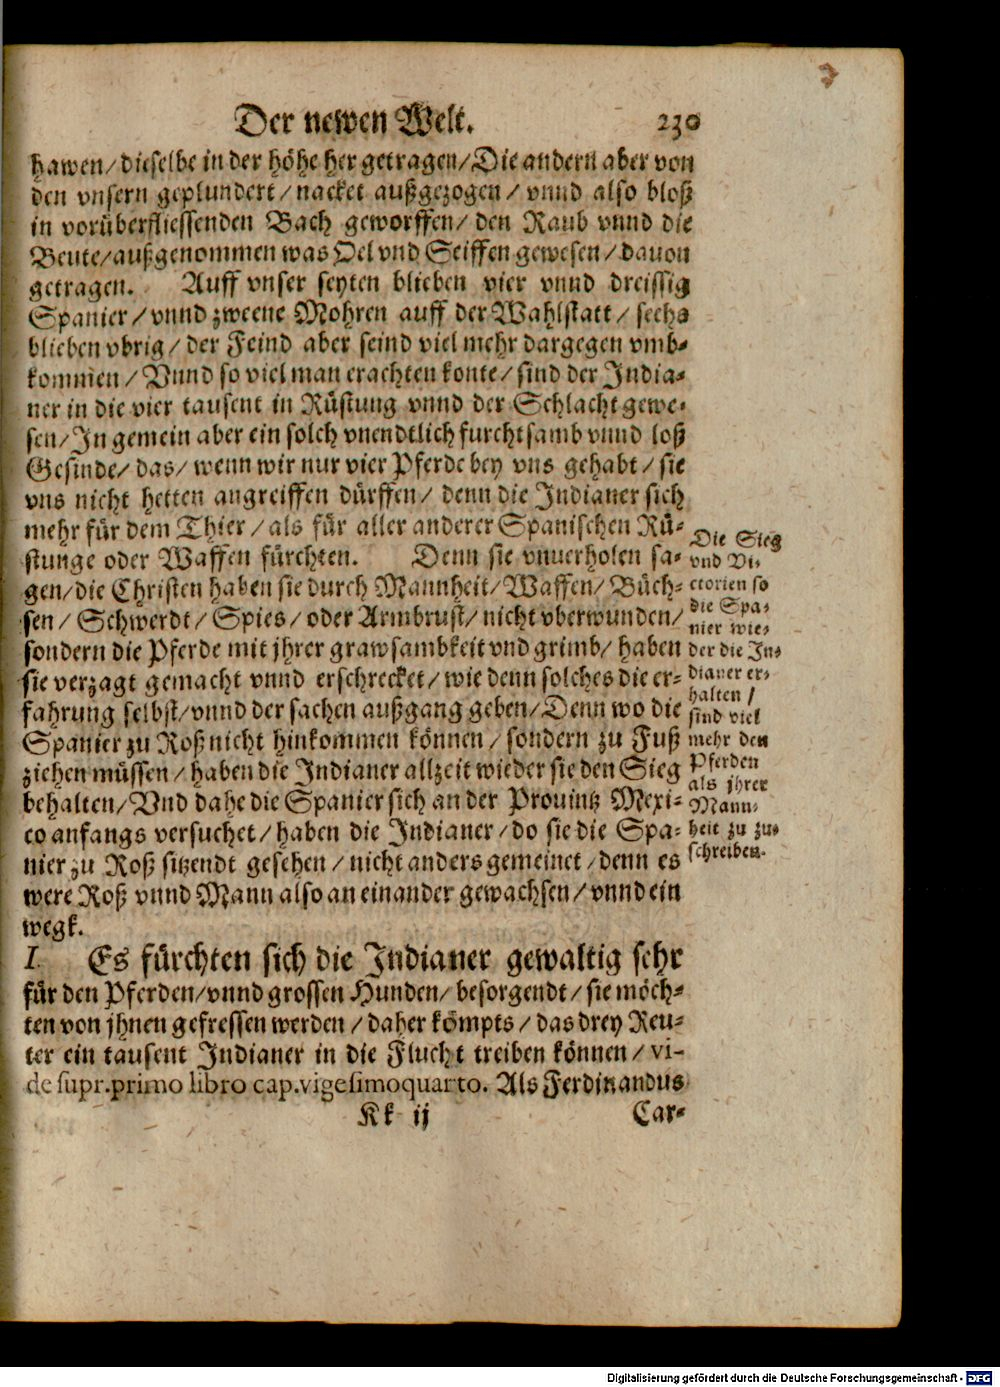 Der newen Welt. 230
hawen/ dieselbe in der höhe her getragen/ Die andern aber von
den vnsern geplundert/ nacket außgezogen/ vnnd also bloß
in vorüberfliessenden Bach geworffen/ den Raub vnnd die
Beute/ außgenommen was Oel vnd Seiffen gewesen/ dauon
getragen. Auff vnser seyten blieben vier vnnd dreissig
Spanier/ vnnd zweene Mohren auff der Wahlstatt/ sechs
blieben vbrig/ der Feind aber seind viel mehr dargegen vmb-
kommen/ Vnnd so viel man erachten konte/ sind der India-
ner in die vier tausent in Rüstung vnnd der Schlacht gewe-
sen/ In gemein aber ein solch vnendtlich furchtsamb vnnd loß
Gesinde/ das/ wenn wir nur vier Pferde bey vns gehabt/ sie
vns nicht hetten angreiffen dürffen/ denn die Indianer sich
mehr für dem Thier/ als für aller anderer Spanischen Rü-
stunge oder Waffen fürchten. Denn sie vnuerholen sa-
gen/ die Christen haben sie durch Mannheit/ Waffen/ Büch-
sen/ Schwerdt/ Spies/ oder Armbrust/ nicht vberwunden/
sondern die Pferde mit jhrer grawsambkeit vnd grimb/ haben
sie verzagt gemacht vnnd erschrecket/ wie denn solches die er-
fahrung selbst/ vnnd der sachen außgang geben/ Denn wo die
Spanier zu Roß nicht hinkommen können/ sondern zu Fuß
ziehen müssen/ haben die Indianer allzeit wieder sie den Sieg
behalten/ Vnd dahe die Spanier sich an der Prouintz Mexi-
co anfangs versuchet/ haben die Indianer/ do sie die Spa-
nier zu Roß sitzendt gesehen/ nicht anders gemeinet/ denn es
were Roß vnnd Mann also an einander gewachsen/ vnnd ein
wegk.
Die Sieg
vnd Vi-
ctorien so
die Spa-
nier wie-
der die In-
dianer er-
halten/
sind viel
mehr den
Pferden
als jhrer
Mann-
heit zu zu-
schreiben.
I. Es fürchten sich die Indianer gewaltig sehr
für den Pferden/ vnnd grossen Hunden/ besorgendt/ sie möch-
ten von jhnen gefressen werden/ daher kömpts/ das drey Reu-
ter ein tausent Indianer in die Flucht treiben können/ vi-
de supr. primo libro cap. vigesimoquarto. Als Ferdinandus
Kk ij Car-
Digitalisierung gefördert durch die Deutsche Forschungsgemeinschaft - DFG